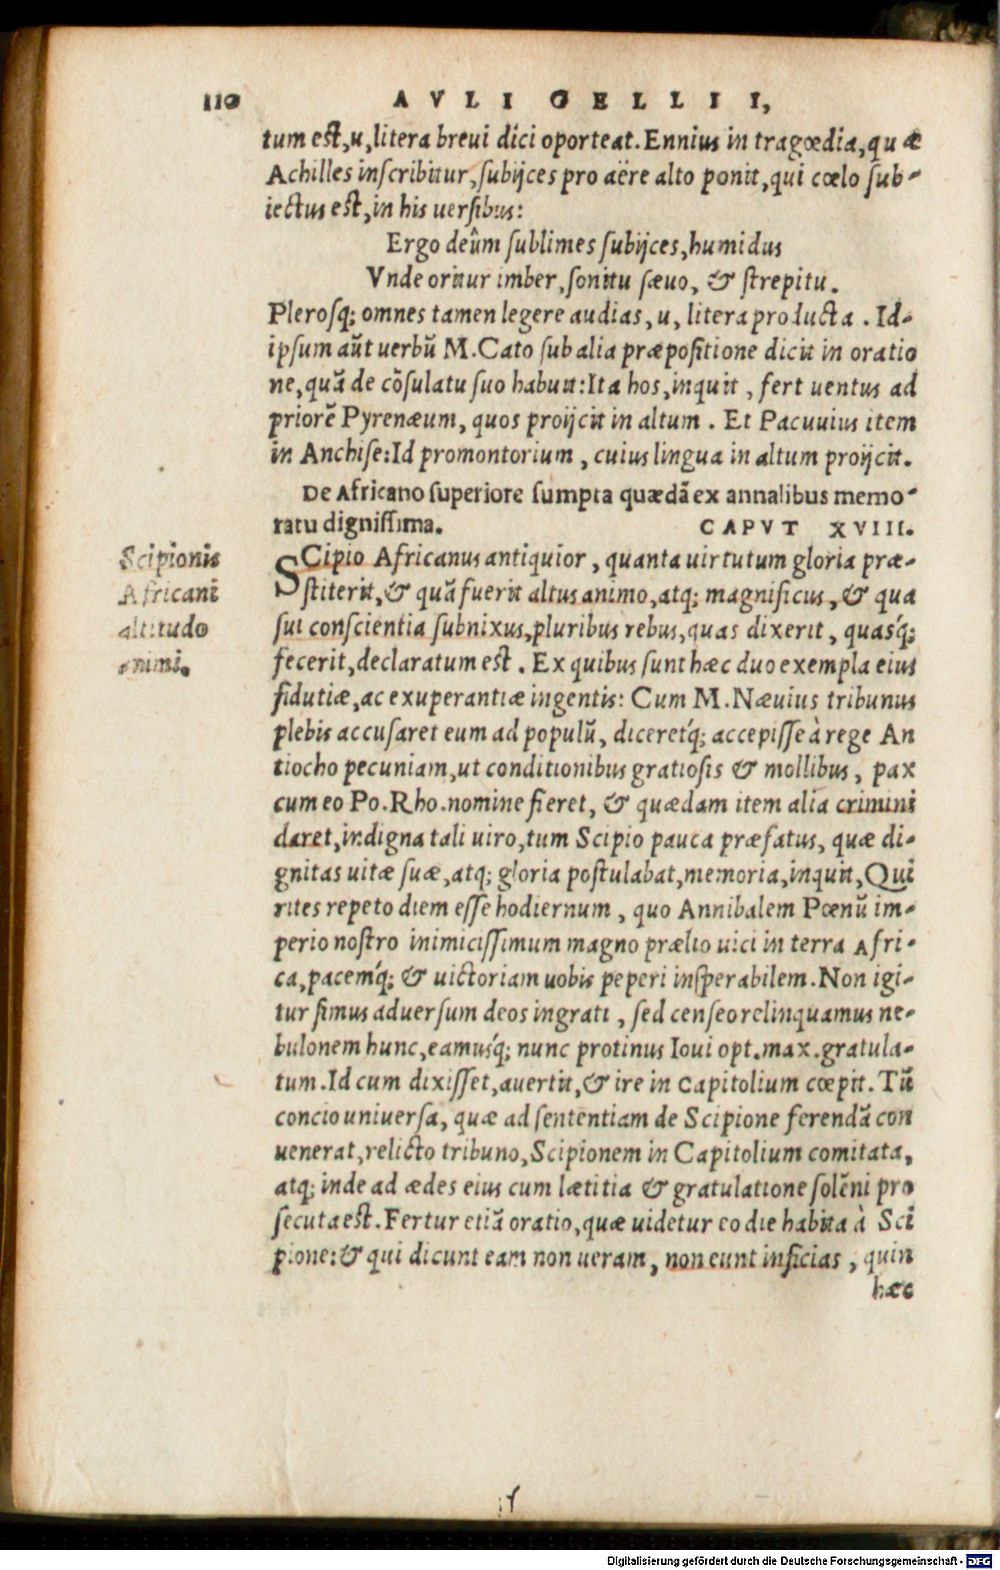 110 AVLI GELLII,
tum est, u, litera breui dici oporteat. Ennius in tragœdia, quæ
Achilles inscribitur, subijces pro aëre alto ponit, qui cœlo sub-
iectus est, in his uersibus:
Ergo deûm sublimes subijces, humidus
Vnde oritur imber, sonitu sæuo, & strepitu.
Plerosq; omnes tamen legere audias, u, litera producta. Id-
ipsum aūt uerbū M. Cato sub alia præpositione dicit in oratio
ne, quā de cōsulatu suo habuit: Ita hos, inquit, fert uentus ad
priorē Pyrenæum, quos proijcit in altum. Et Pacuuius item
in Anchise: Id promontorium, cuius lingua in altum proijcit.
De Africano superiore sumpta quædā ex annalibus memo-
ratu dignissima. CAPVT XVIII.
Scipionis
Africani
altitudo
animi.
SCipio Africanus antiquior, quanta uirtutum gloria præ-
stiterit, & quā fuerit altus animo, atq; magnificus, & qua
sui conscientia subnixus, pluribus rebus, quas dixerit, quasq́;
fecerit, declaratum est. Ex quibus sunt hæc duo exempla eius
fidutiæ, ac exuperantiæ ingentis: Cum M. Næuius tribunus
plebis accusaret eum ad populū, diceretq́; accepisse à rege An
tiocho pecuniam, ut conditionibus gratiosis & mollibus, pax
cum eo Po. Rho. nomine fieret, & quædam item alia crimini
daret, indigna tali uiro, tum Scipio pauca præfatus, quæ di-
gnitas uitæ suæ, atq; gloria postulabat, memoria, inquit, Qui
rites repeto diem esse hodiernum, quo Annibalem Pœnū im-
perio nostro inimicissimum magno prælio uici in terra Afri-
ca, pacemq́; & uictoriam uobis peperi insperabilem. Non igi-
tur simus aduersum deos ingrati, sed censeo relinquamus ne-
bulonem hunc, eamusq́; nunc protinus Ioui opt. max. gratula-
tum. Id cum dixisset, auertit, & ire in Capitolium cœpit. Tū
concio uniuersa, quæ ad sententiam de Scipione ferendā con
uenerat, relicto tribuno, Scipionem in Capitolium comitata,
atq; inde ad ædes eius cum lætitia & gratulatione solēni pro
secuta est. Fertur etiā oratio, quæ uidetur eo die habita à Sci
pione: & qui dicunt eam non ueram, non eunt inficias, quin
hæc
Digitalisierung gefördert durch die Deutsche Forschungsgemeinschaft - DFG